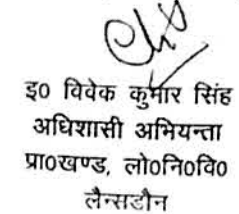 इ0 विवेक कुमार सिंह
अधिशासी अभियन्ता
प्रा0खण्ड, लो0नि0वि0
लैन्सडौन